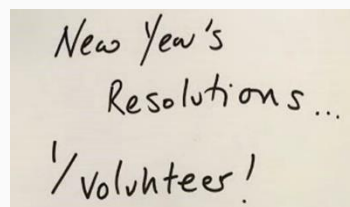 New Year's
Resolutions...
1/ Volunteer!